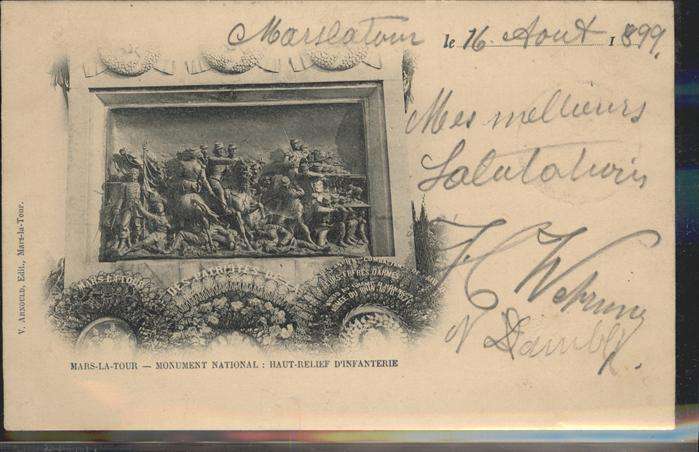 Marslatour le 16 Août 1899.
Mes meilleurs
Salutations
MARS-LA-TOUR
MARS-LA-TOUR — MONUMENT NATIONAL : HAUT-RELIEF D'INFANTERIE
V. ARNOULD, Edit., Mars-la-Tour.